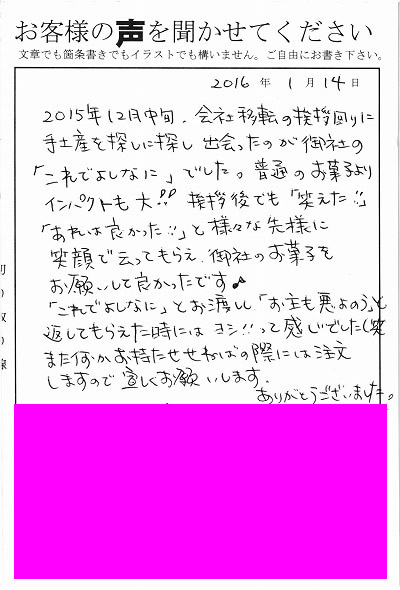 お客様の声を聞かせてください
文章でも箇条書きでもイラストでも構いません。ご自由にお書き下さい。
2016年 1月14日
2015年12月中旬、会社移転の挨拶回りに
手土産を探しに探し 出会ったのが御社の
「これでよしなに」でした。普通のお菓子より
インパクトも大!! 挨拶後でも「笑えた!!」
「あれは良かった!!」と様々な先様に
笑顔で云ってもらえ、御社のお菓子を
お願いして良かったです♪
「これでよしなに」とお渡しし「お主も悪よのう」と
返してもらえた時には ヨシ!!って感じでした(笑
また何かお持たせせねばの際には注文
しますので宜しくお願いします。
ありがとうございました。